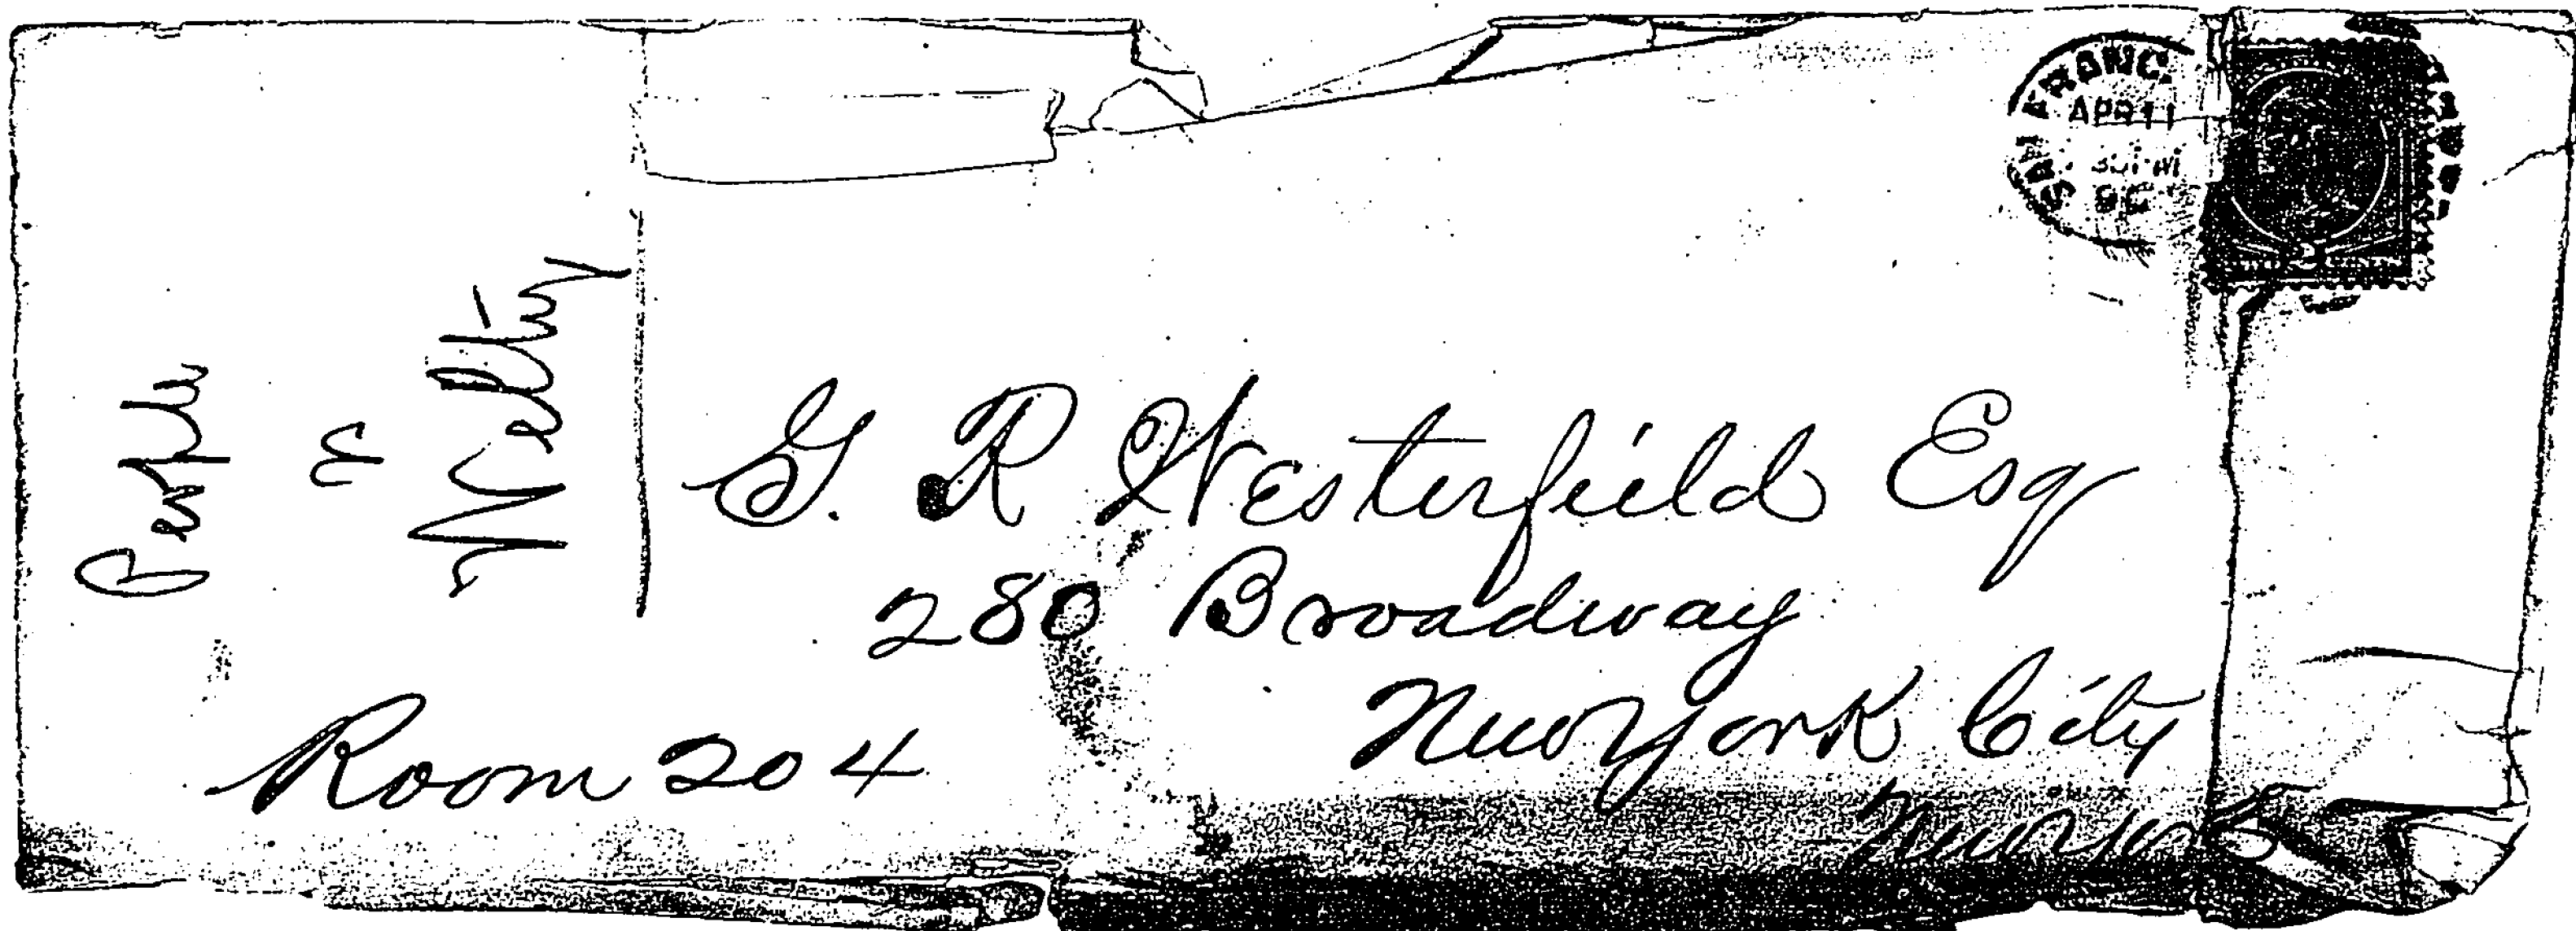 SAN FRANC
APR 11
G. R Westerfield Esq
280 Broadway
New York City
New York
Room 204